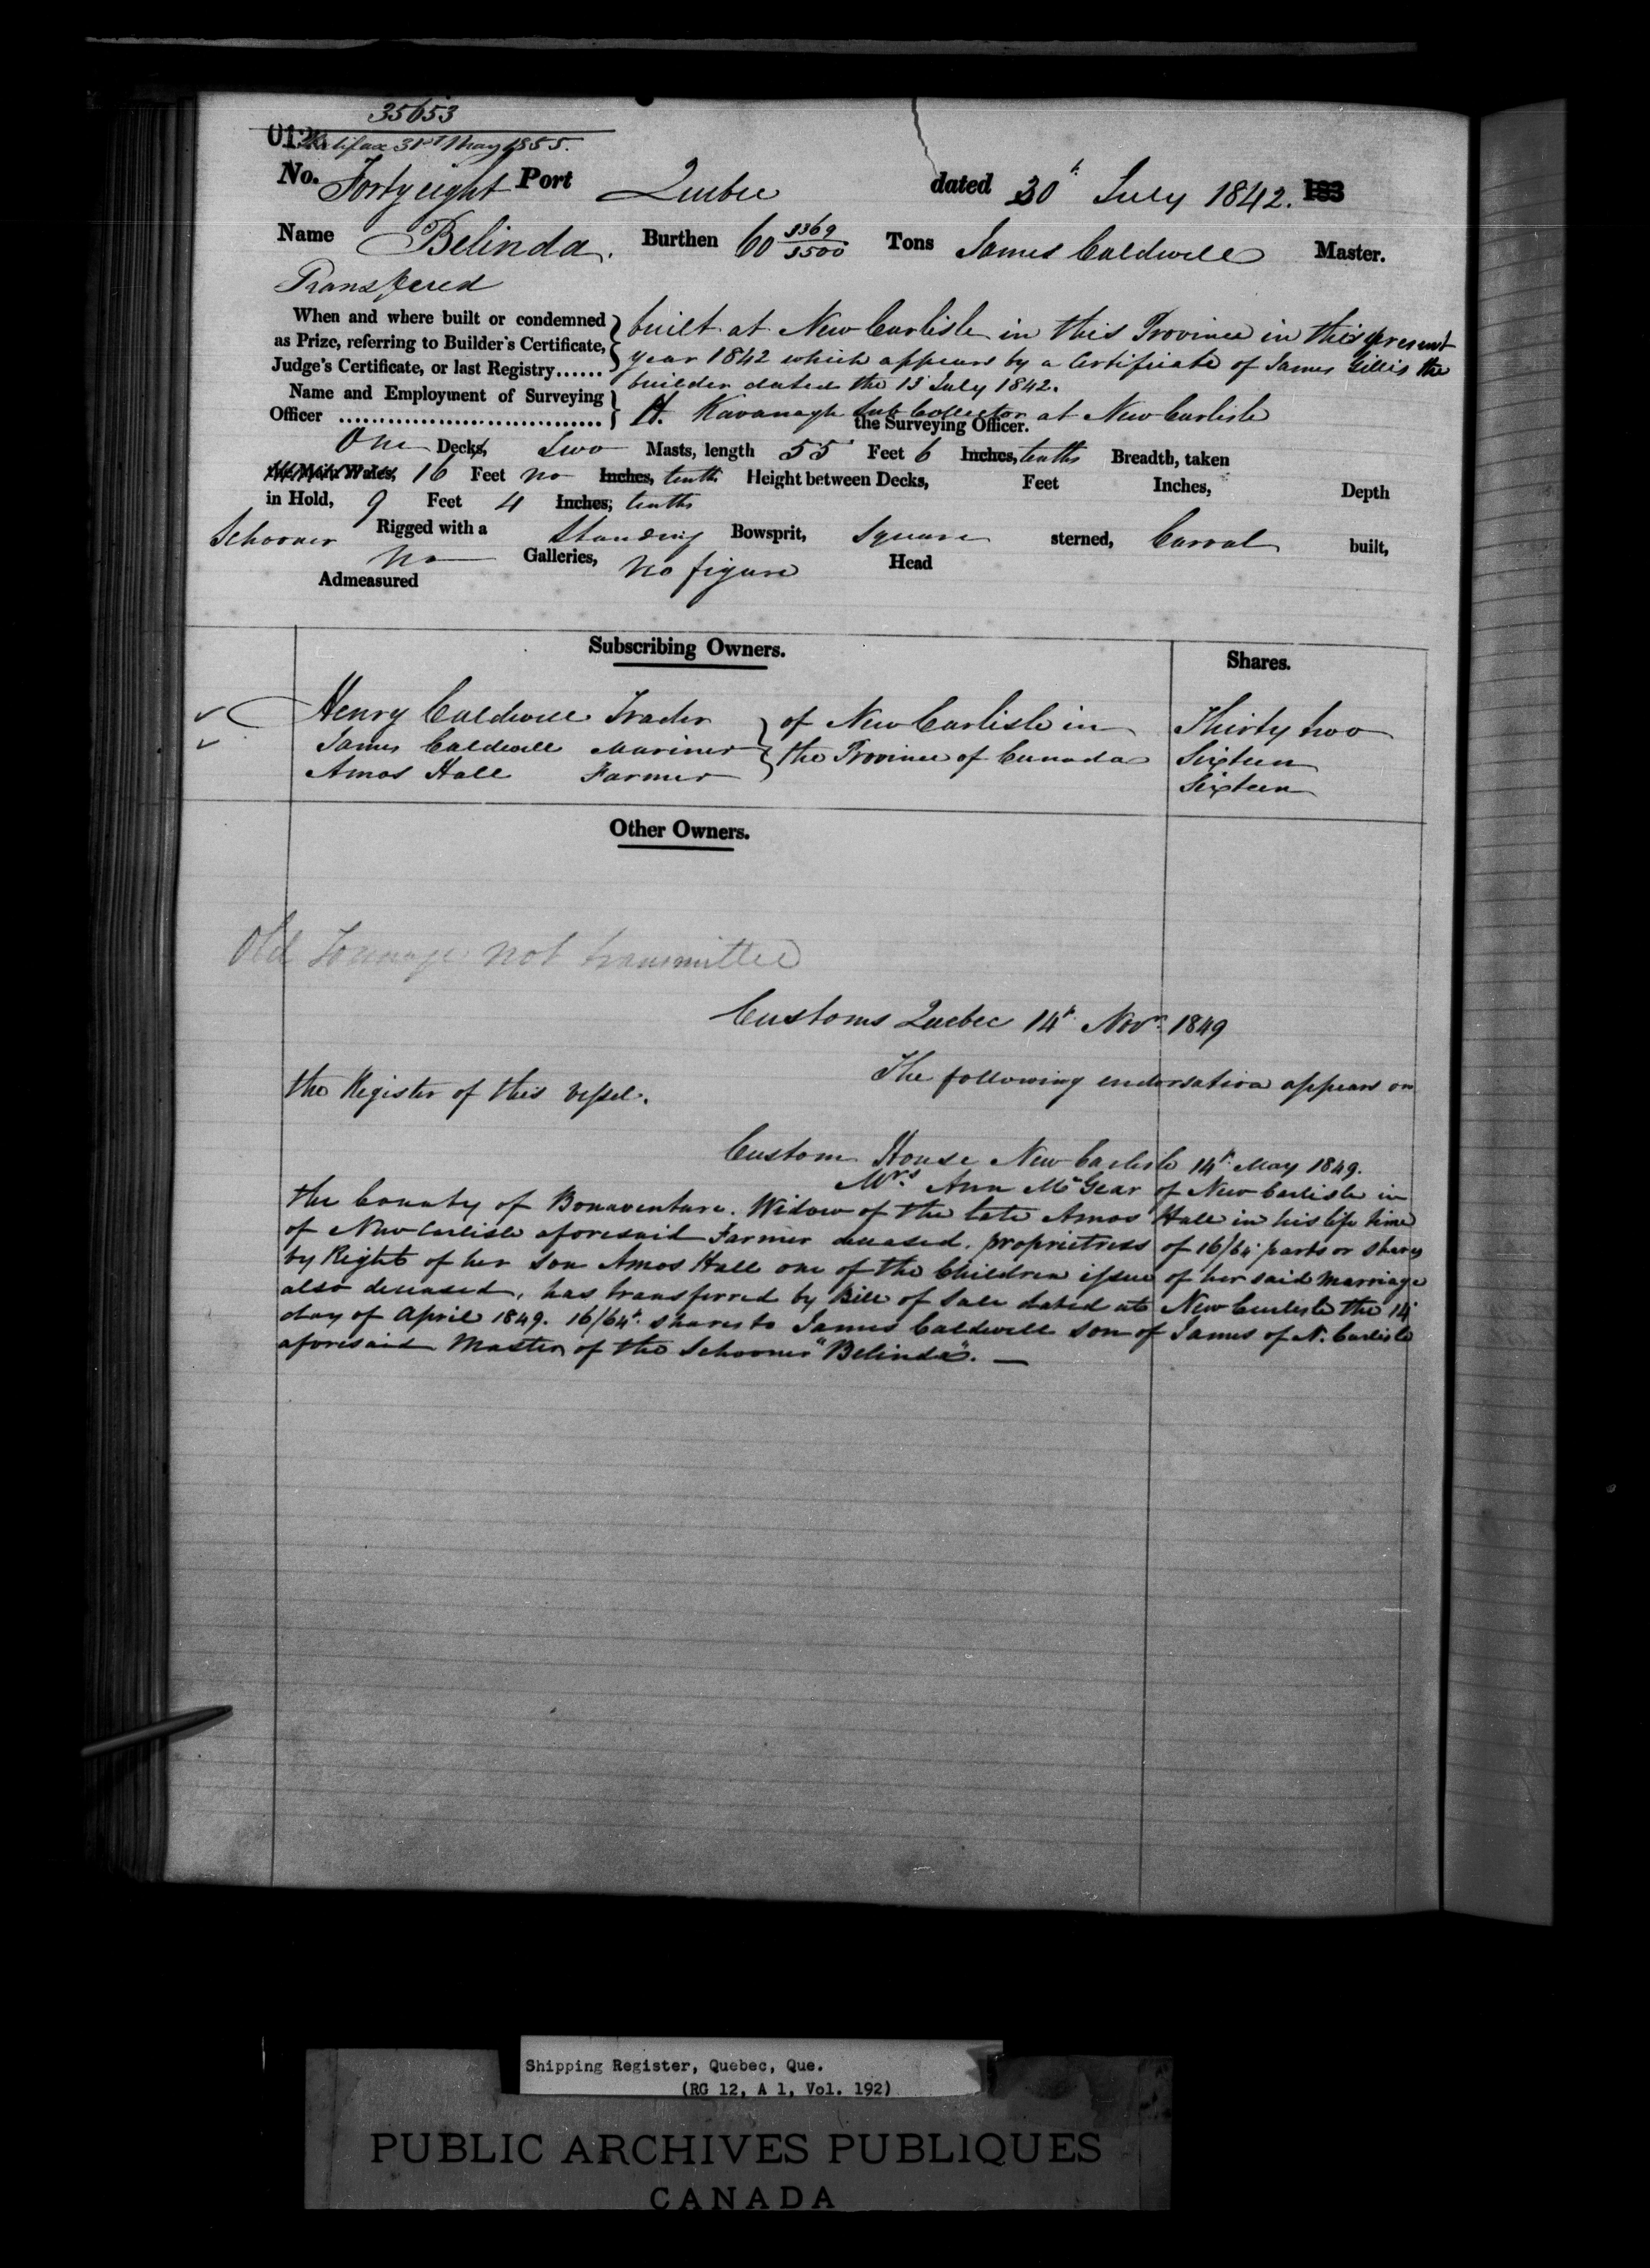 35653
012 Halifax 31st May 1855.
No. Forty eight Port Quebec dated 30th July 1842. 183
Name Belinda. Burthen 60 3369/3500 Tons James Caldwell Master.
Transfered
When and where built or condemned built at New Carlisle in this Province in this present
as Prize, referring to Builder's Certificate, year 1842 which appears by a Certificate of James Gillis the
Judge's Certificate, or last Registry...... builder dated the 13 July 1842.
Name and Employment of Surveying
Officer ................................ H. Kavanagh Sub Collector at New Carlisle
the Surveying Officer.
One Decks, Two Masts, length 55 Feet 6 Inches, tenths Breadth, taken
Main Wales, 16 Feet no Inches, tenths Height between Decks, Feet Inches, Depth
in Hold, 9 Feet 4 Inches; tenths
Schooner Rigged with a Standing Bowsprit, Square sterned, Carval built,
no Galleries, no figure Head
Admeasured
Subscribing Owners. Shares.
Henry Caldwell Trader of New Carlisle in Thirty two
James Caldwell Mariner the Province of Canada Sixteen
Amos Hall Farmer Sixteen
Other Owners.
Old Tonnage not transmitted
Customs Quebec 14th Novr. 1849
The following endorsation appears on
the Register of this vessel.
Custom House New Carlisle 14th May 1849.
Mrs. Ann McGear of New Carlisle in
the County of Bonaventure. Widow of the late Amos Hall in his life time
of New Carlisle aforesaid Farmer deceased. proprietress of 16/64 parts or shares
by Right of her son Amos Hall one of the Children issue of her said marriage
also deceased, has transferred by Bill of Sale dated at New Carlisle the 14
day of April 1849. 16/64th shares to James Caldwell son of James of N. Carlisle
aforesaid Master of the Schooner "Belinda".
Shipping Register, Quebec, Que.
(RG 12, A 1, Vol. 192)
PUBLIC ARCHIVES PUBLIQUES
CANADA